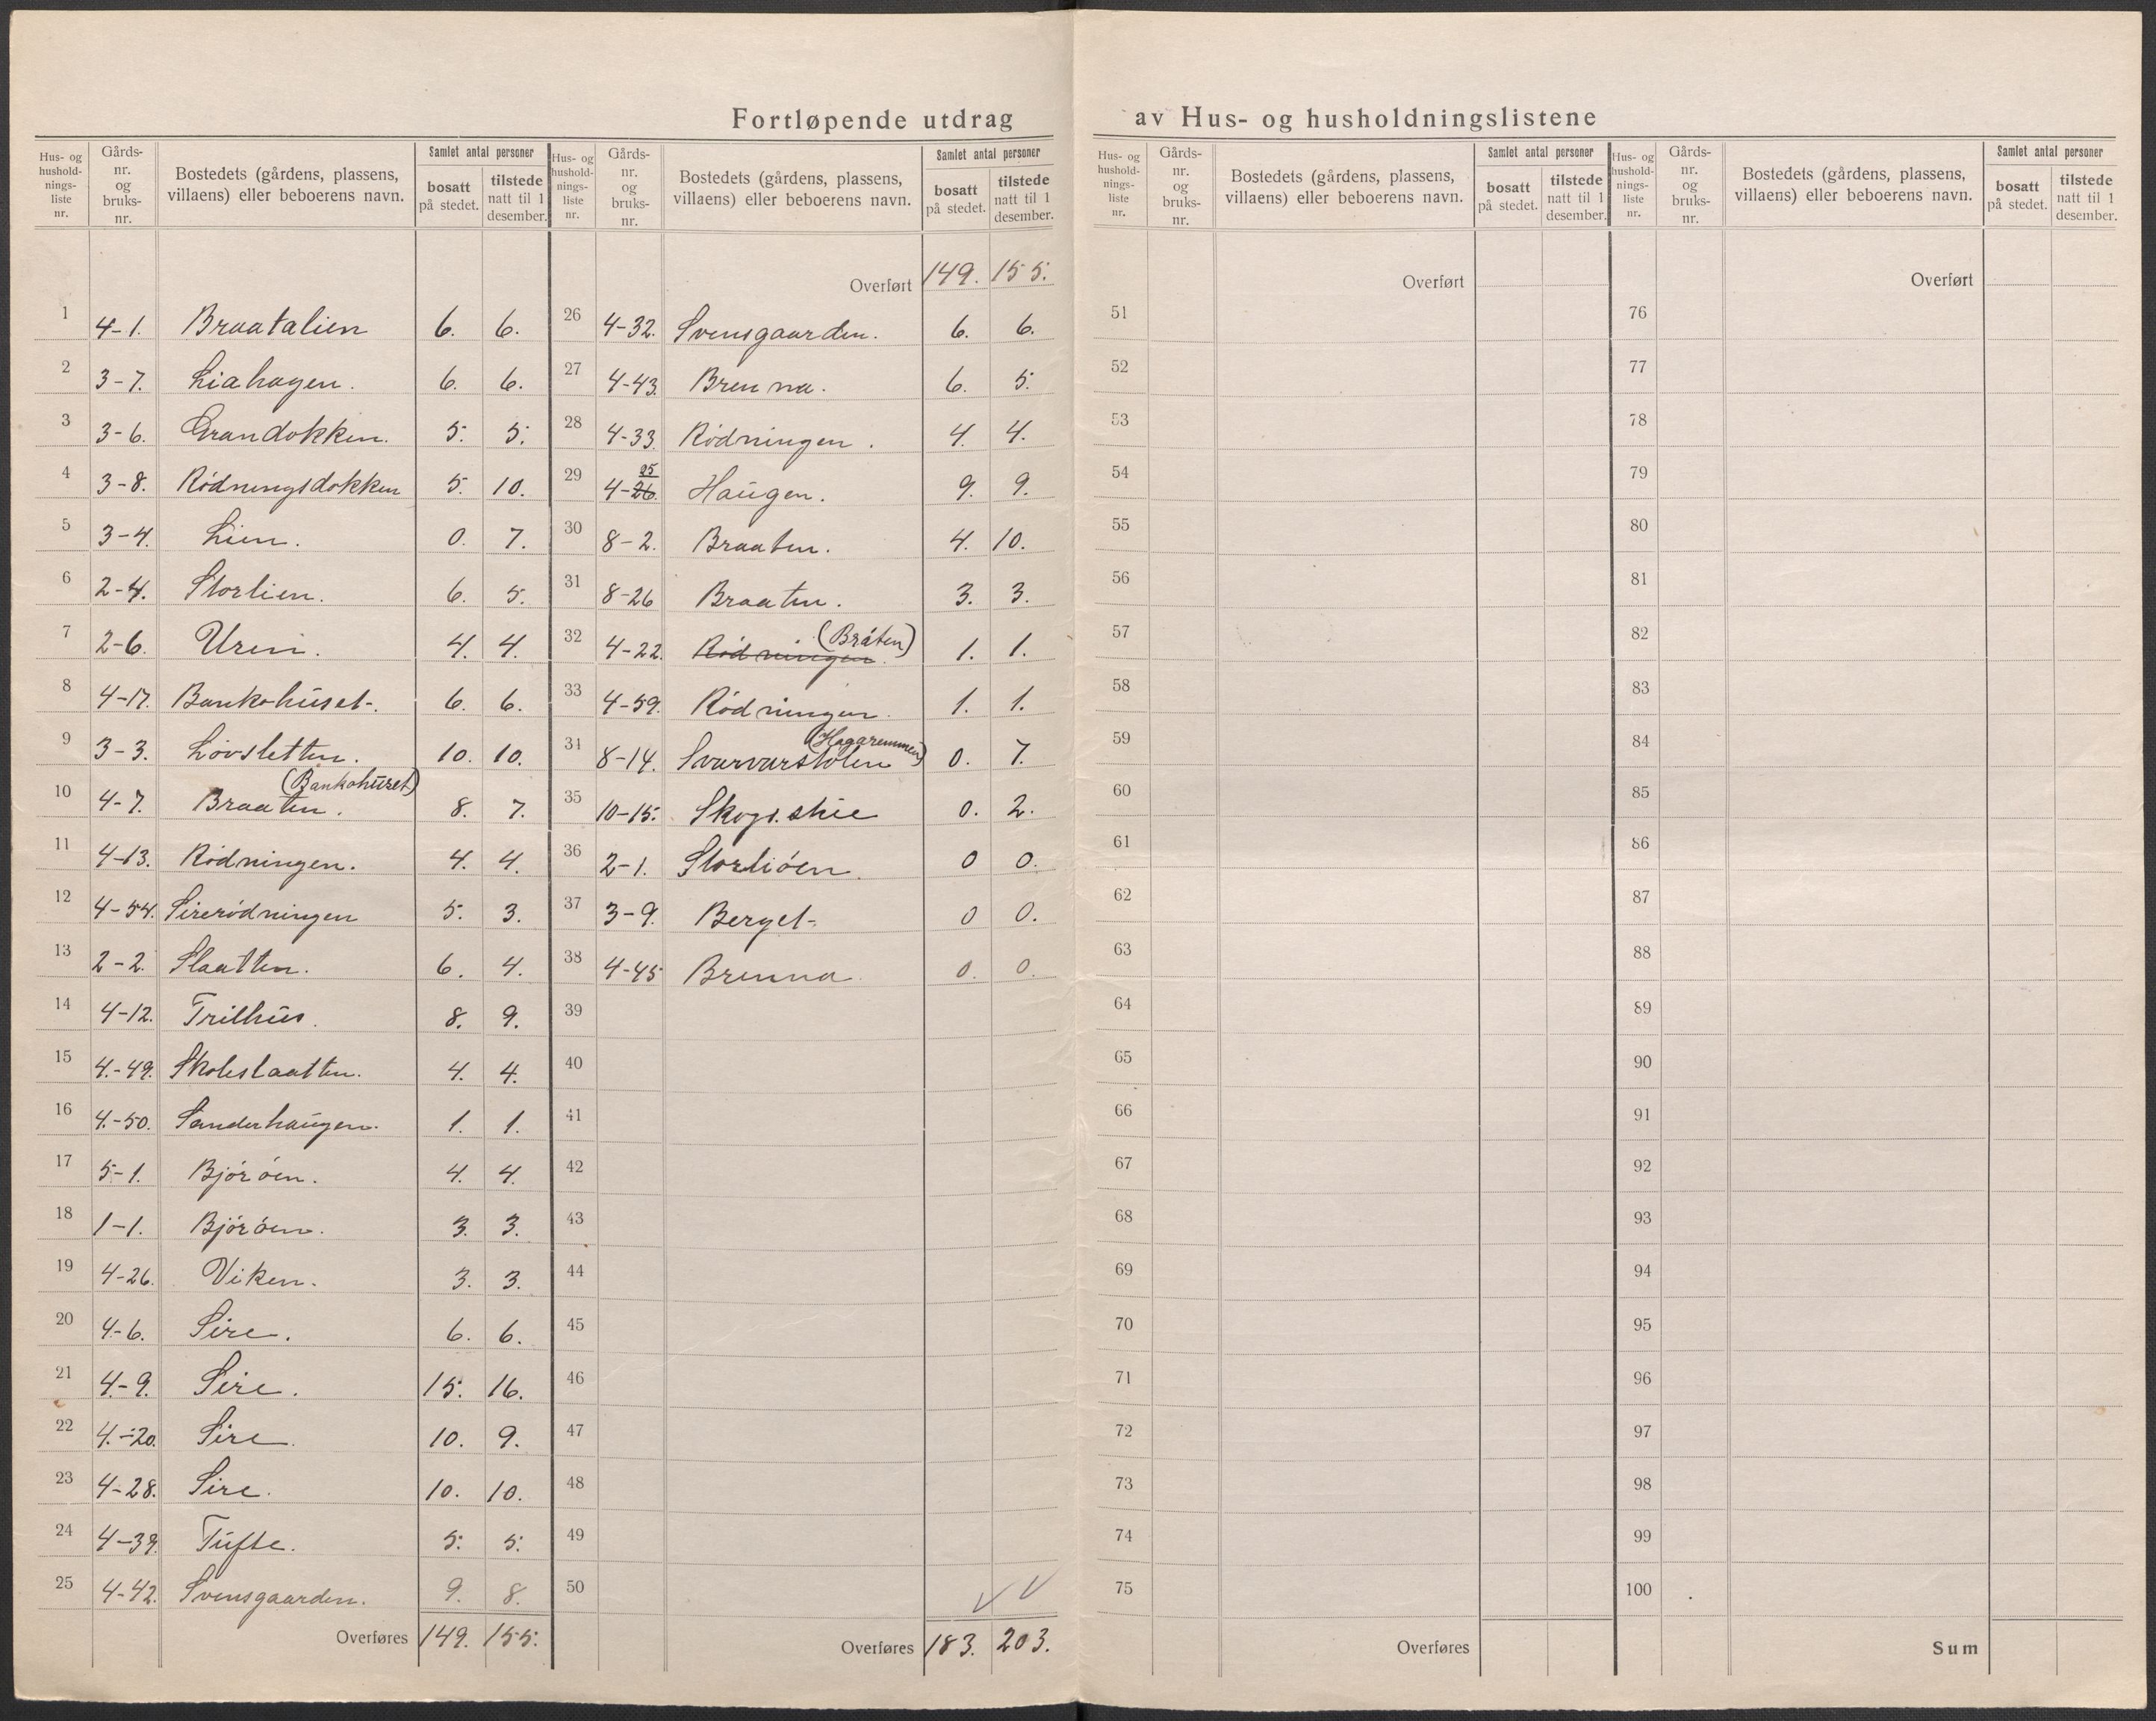 Fortløpende utdrag av Hus- og husholdningslistene
Hus- og hushold-nings-liste nr. Gårds-nr. og bruks-nr. Bostedets (gårdens, plassens, villaens) eller beboerens navn. Samlet antal personer bosatt på stedet. tilstede natt til 1 desember.
1 4-1. Braatalien 6. 6.
2 3-7. Liahagen. 6. 6.
3 3-6. Grandokken. 5. 5.
4 3-8. Rødningsdokken 5. 10.
5 3-4. Lien. 0. 7.
6 2-4. Storlien. 6. 5.
7 2-6. Uren. 4. 4.
8 4-17. Bankohuset. 6. 6.
9 3-3. Løvsletten. 10. 10.
(Bankohuset)
10 4-7. Braaten. 8. 7.
11 4-13. Rødningen. 4. 4.
12 4-54. Sirerødningen 5. 3.
13 2-2. Slaatten. 6. 4.
14 4-12. Trilhus. 8. 9.
15 4-49. Skoleslaatten. 4. 4.
16 4-50. Sanderhaugen. 1. 1.
17 5-1. Bjørøen. 4. 4.
18 1-1. Bjørøen. 3. 3.
19 4-26. Viken. 3. 3.
20 4-6. Sire. 6. 6.
21 4-9. Sire. 15. 16.
22 4-20. Sire. 10. 9.
23 4-28. Sire. 10. 10.
24 4-39. Tufte. 5. 5.
25 4-42. Svensgaarden. 9. 8.
Overføres 149. 155.
Hus- og hushold-nings-liste nr. Gårds-nr. og bruks-nr. Bostedets (gårdens, plassens, villaens) eller beboerens navn. Samlet antal personer bosatt på stedet. tilstede natt til 1 desember.
Overført 149. 155.
26 4-32. Svensgaarden. 6. 6.
27 4-43. Brenna. 6. 5.
28 4-33. Rødningen. 4. 4.
29 4-26. 25 Haugen. 9. 9.
30 8-2. Braaten. 4. 10.
31 8-26 Braaten. 3. 3.
32 4-22. Rødningen. (Bråten) 1. 1.
33 4-59. Rødningen. 1. 1.
34 8-14. Svarvarstølen (Hagaremmen) 0. 7.
35 10-15. Skogs.stue 0. 2.
36 2-1. Storliøen. 0 0.
37 3-9. Berget. 0 0.
38 4-45 Brenna. 0. 0.
39
40
41
42
43
44
45
46
47
48
49
50
Overføres 183. 203.
Hus- og hushold-nings-liste nr. Gårds-nr. og bruks-nr. Bostedets (gårdens, plassens, villaens) eller beboerens navn. Samlet antal personer bosatt på stedet. tilstede natt til 1 desember.
Overført
51
52
53
54
55
56
57
58
59
60
61
62
63
64
65
66
67
68
69
70
71
72
73
74
75
Overføres
Hus- og hushold-nings-liste nr. Gårds-nr. og bruks-nr. Bostedets (gårdens, plassens, villaens) eller beboerens navn. Samlet antal personer bosatt på stedet. tilstede natt til 1 desember.
Overført
76
77
78
79
80
81
82
83
84
85
86
87
88
89
90
91
92
93
94
95
96
97
98
99
100
Sum